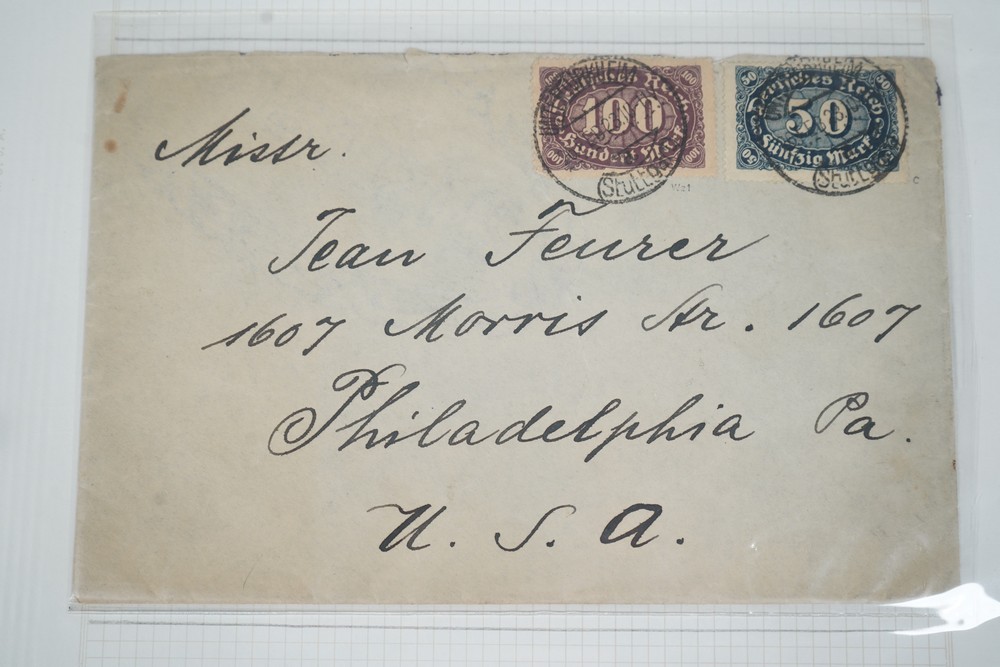 100 100
Deutsches Reich
100
Hundert Mark
100 100
50 50
Deutsches Reich
50
Fünfzig Mark
50
(Stuttg
(Stuttg
Missr.
Jean Feurer
1607 Morris Str. 1607
Philadelphia Pa.
U. S. A.